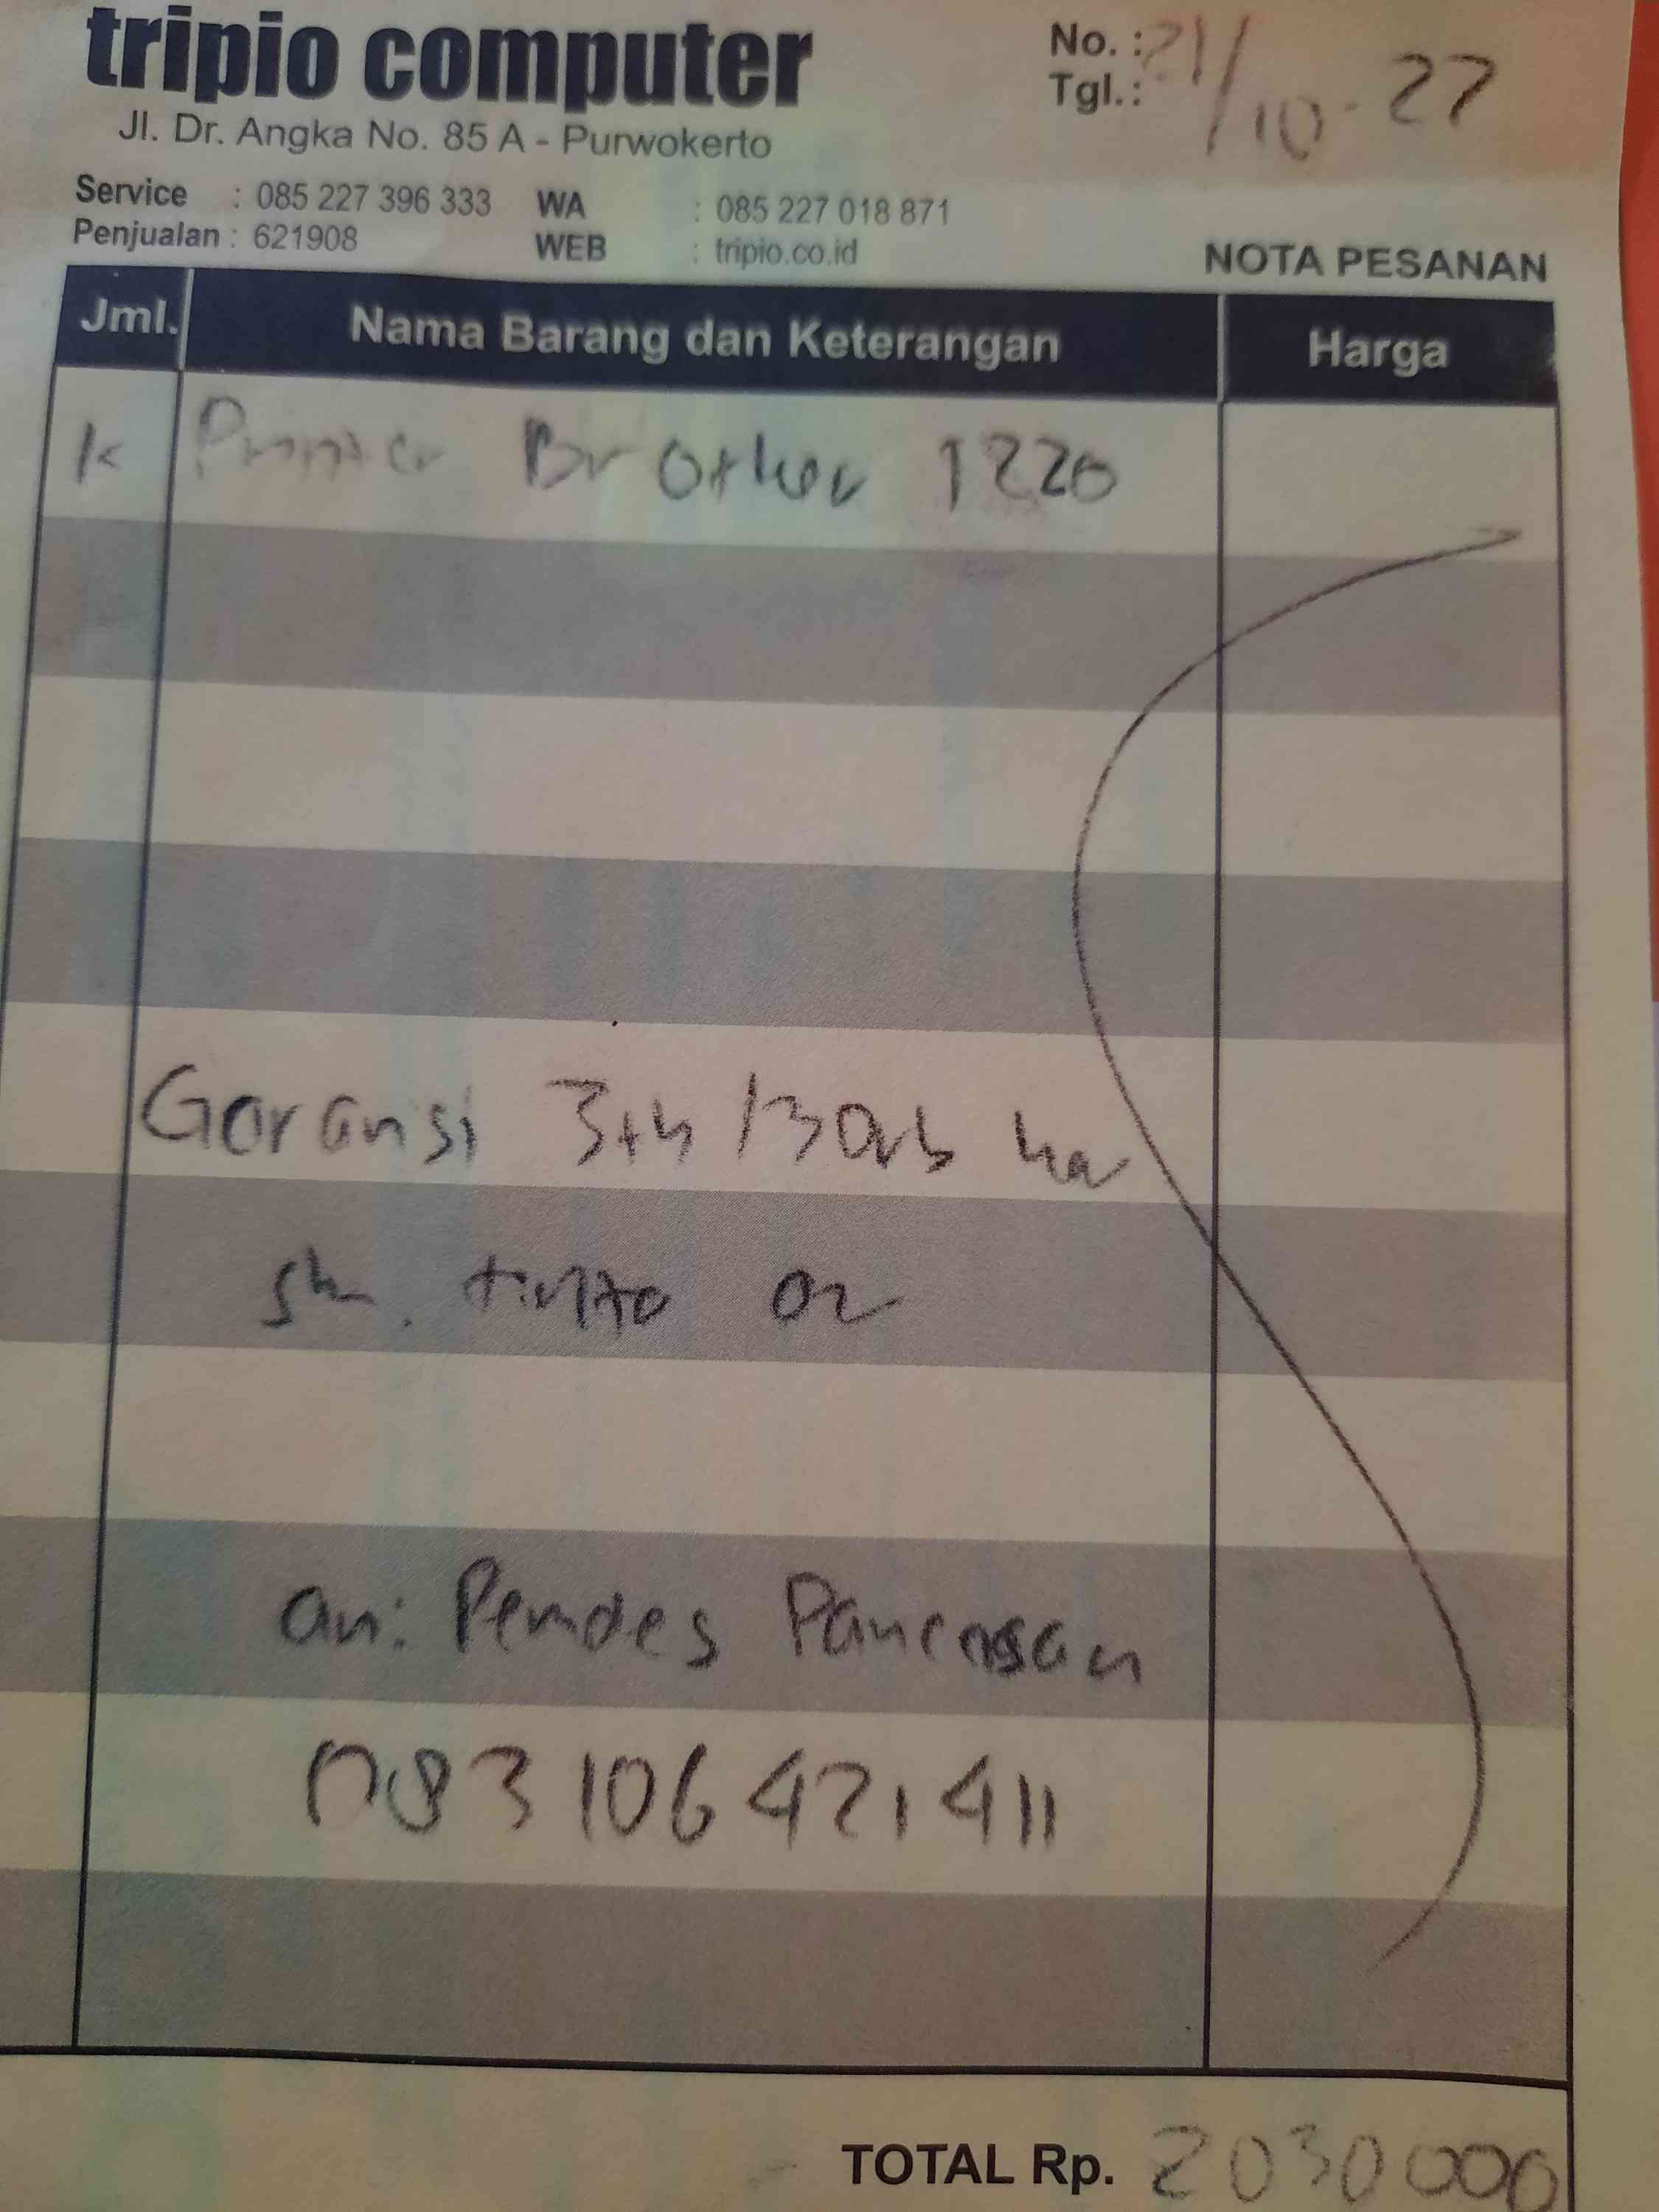 tripio computer
Jl. Dr. Angka No. 85 A - Purwokerto
No. :
Tgl. : 21/10-27
Service : 085 227 396 333 WA : 085 227 018 871
Penjualan : 621908 WEB : tripio.co.id
NOTA PESANAN
Jml. Nama Barang dan Keterangan Harga
Printer Brother 1220
Garansi 3th/30rb
tinta
an: Pemdes
083106421411
TOTAL Rp. 2030000